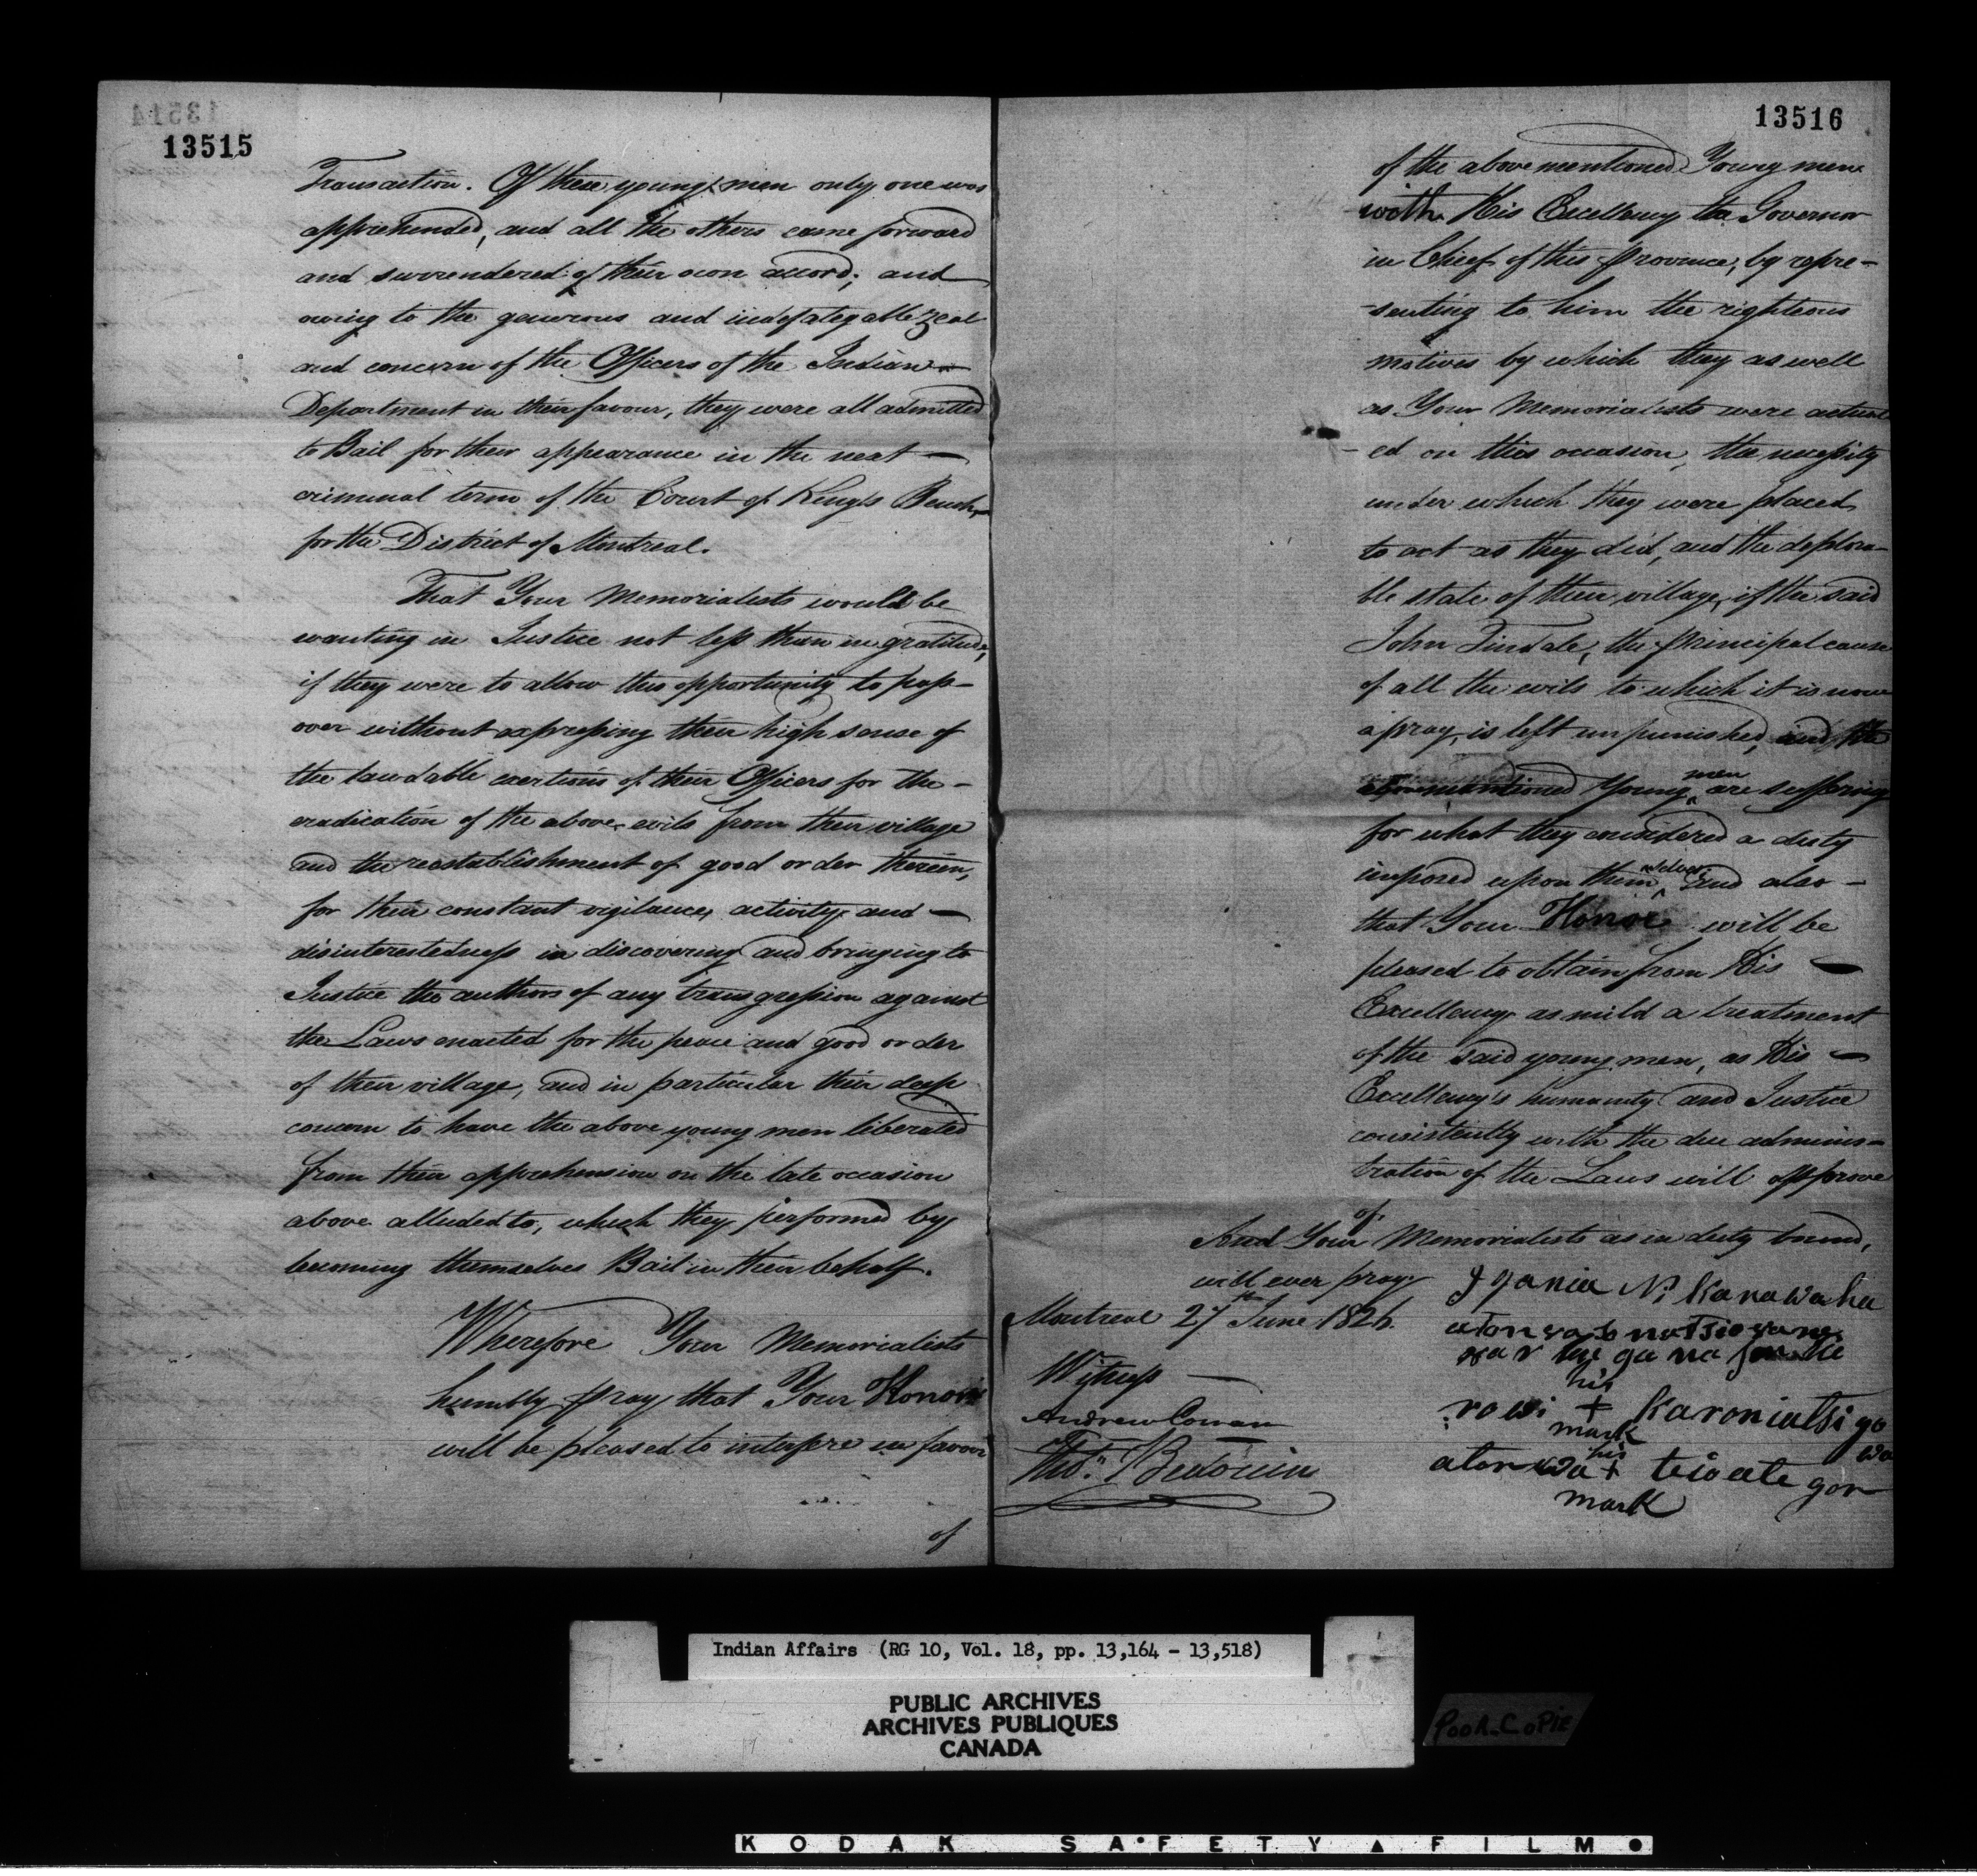 13515
Transaction. Of these young men only one was
apprehended, and all the others came forward
and surrendered of their own accord; and
owing to the generous and indefategable zeal
and concern of the Officers of the Indian —
Department in their favour, they were all admitted
to Bail for their appearance in the next —
criminal term of the Court of King's Bench
for the District of Montreal.
That Your Memorialists would be
wanting in Justice not less than in gratitude,
if they were to allow this opportunity to pass
over without expressing their high sense of
the laudable exertions of their Officers for the —
eradication of the above evils from their village
and the reestablishment of good order therein,
for their constant vigilance, activity and —
disinterestedness in discovering and bringing to
Justice the authors of any transgression against
the Laws enacted for the peace and good order
of their village, and in particular their deep
concern to have the above young men liberated
from their apprehension on the late occasion
above alluded to, which they performed by
becoming themselves Bail in their behalf.
Wherefore Your Memorialists
humbly pray that Your Honor
will be pleased to interfere in favour
of
13516
of the above mentioned Young men
with His Excellency the Governor
in Chief of this Province, by repre-
-senting to him the righteous
motives by which they as well
as Your Memorialists were actuat
- ed on this occasion, the necessity
under which they were placed
to act as they did, and the deplora-
ble state of their village, if the said
John Tindale, the principal cause
of all the evils to which it is now
a pray, is left unpunished, and the
abovementioned Young men are suffering
for what they considered a duty
imposed upon them and also —
that Your Honor will be
pleased to obtain from His —
Excellency as mild a treatment
of the said young men, as His —
Excellency's humanity and Justice
consistently with the due adminis-
tration of the Laws will approve
of.
And Your Memorialists as in duty bound,
will ever pray.
Montreal 27th June 1826.
Witness —
Andrew Cowan
Thos. Bedouin
his
rowi + Karoniatsi go
mark wa
his
atonwa + teioate gon
mark
Indian Affairs (RG 10, Vol. 18, pp. 13,164 - 13,518)
PUBLIC ARCHIVES
ARCHIVES PUBLIQUES
CANADA
POOR COPIE
KODAK SAFETY FILM